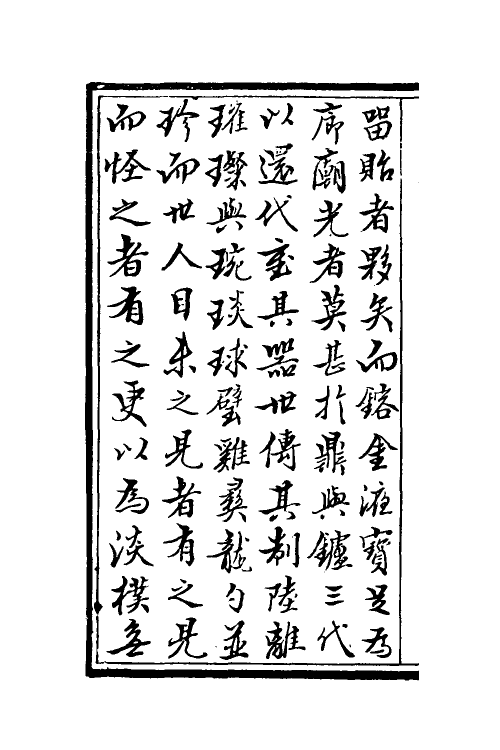 留貽者夥矣而鎔金液寶足為
廊廟光者莫甚於鼎與鑪三代
以還代重其器世傳其制陸離
璀璨與琬琰球璧雞彝龍勺並
珍而世人目未之見者有之見
而怪之者有之更以為淡樸無